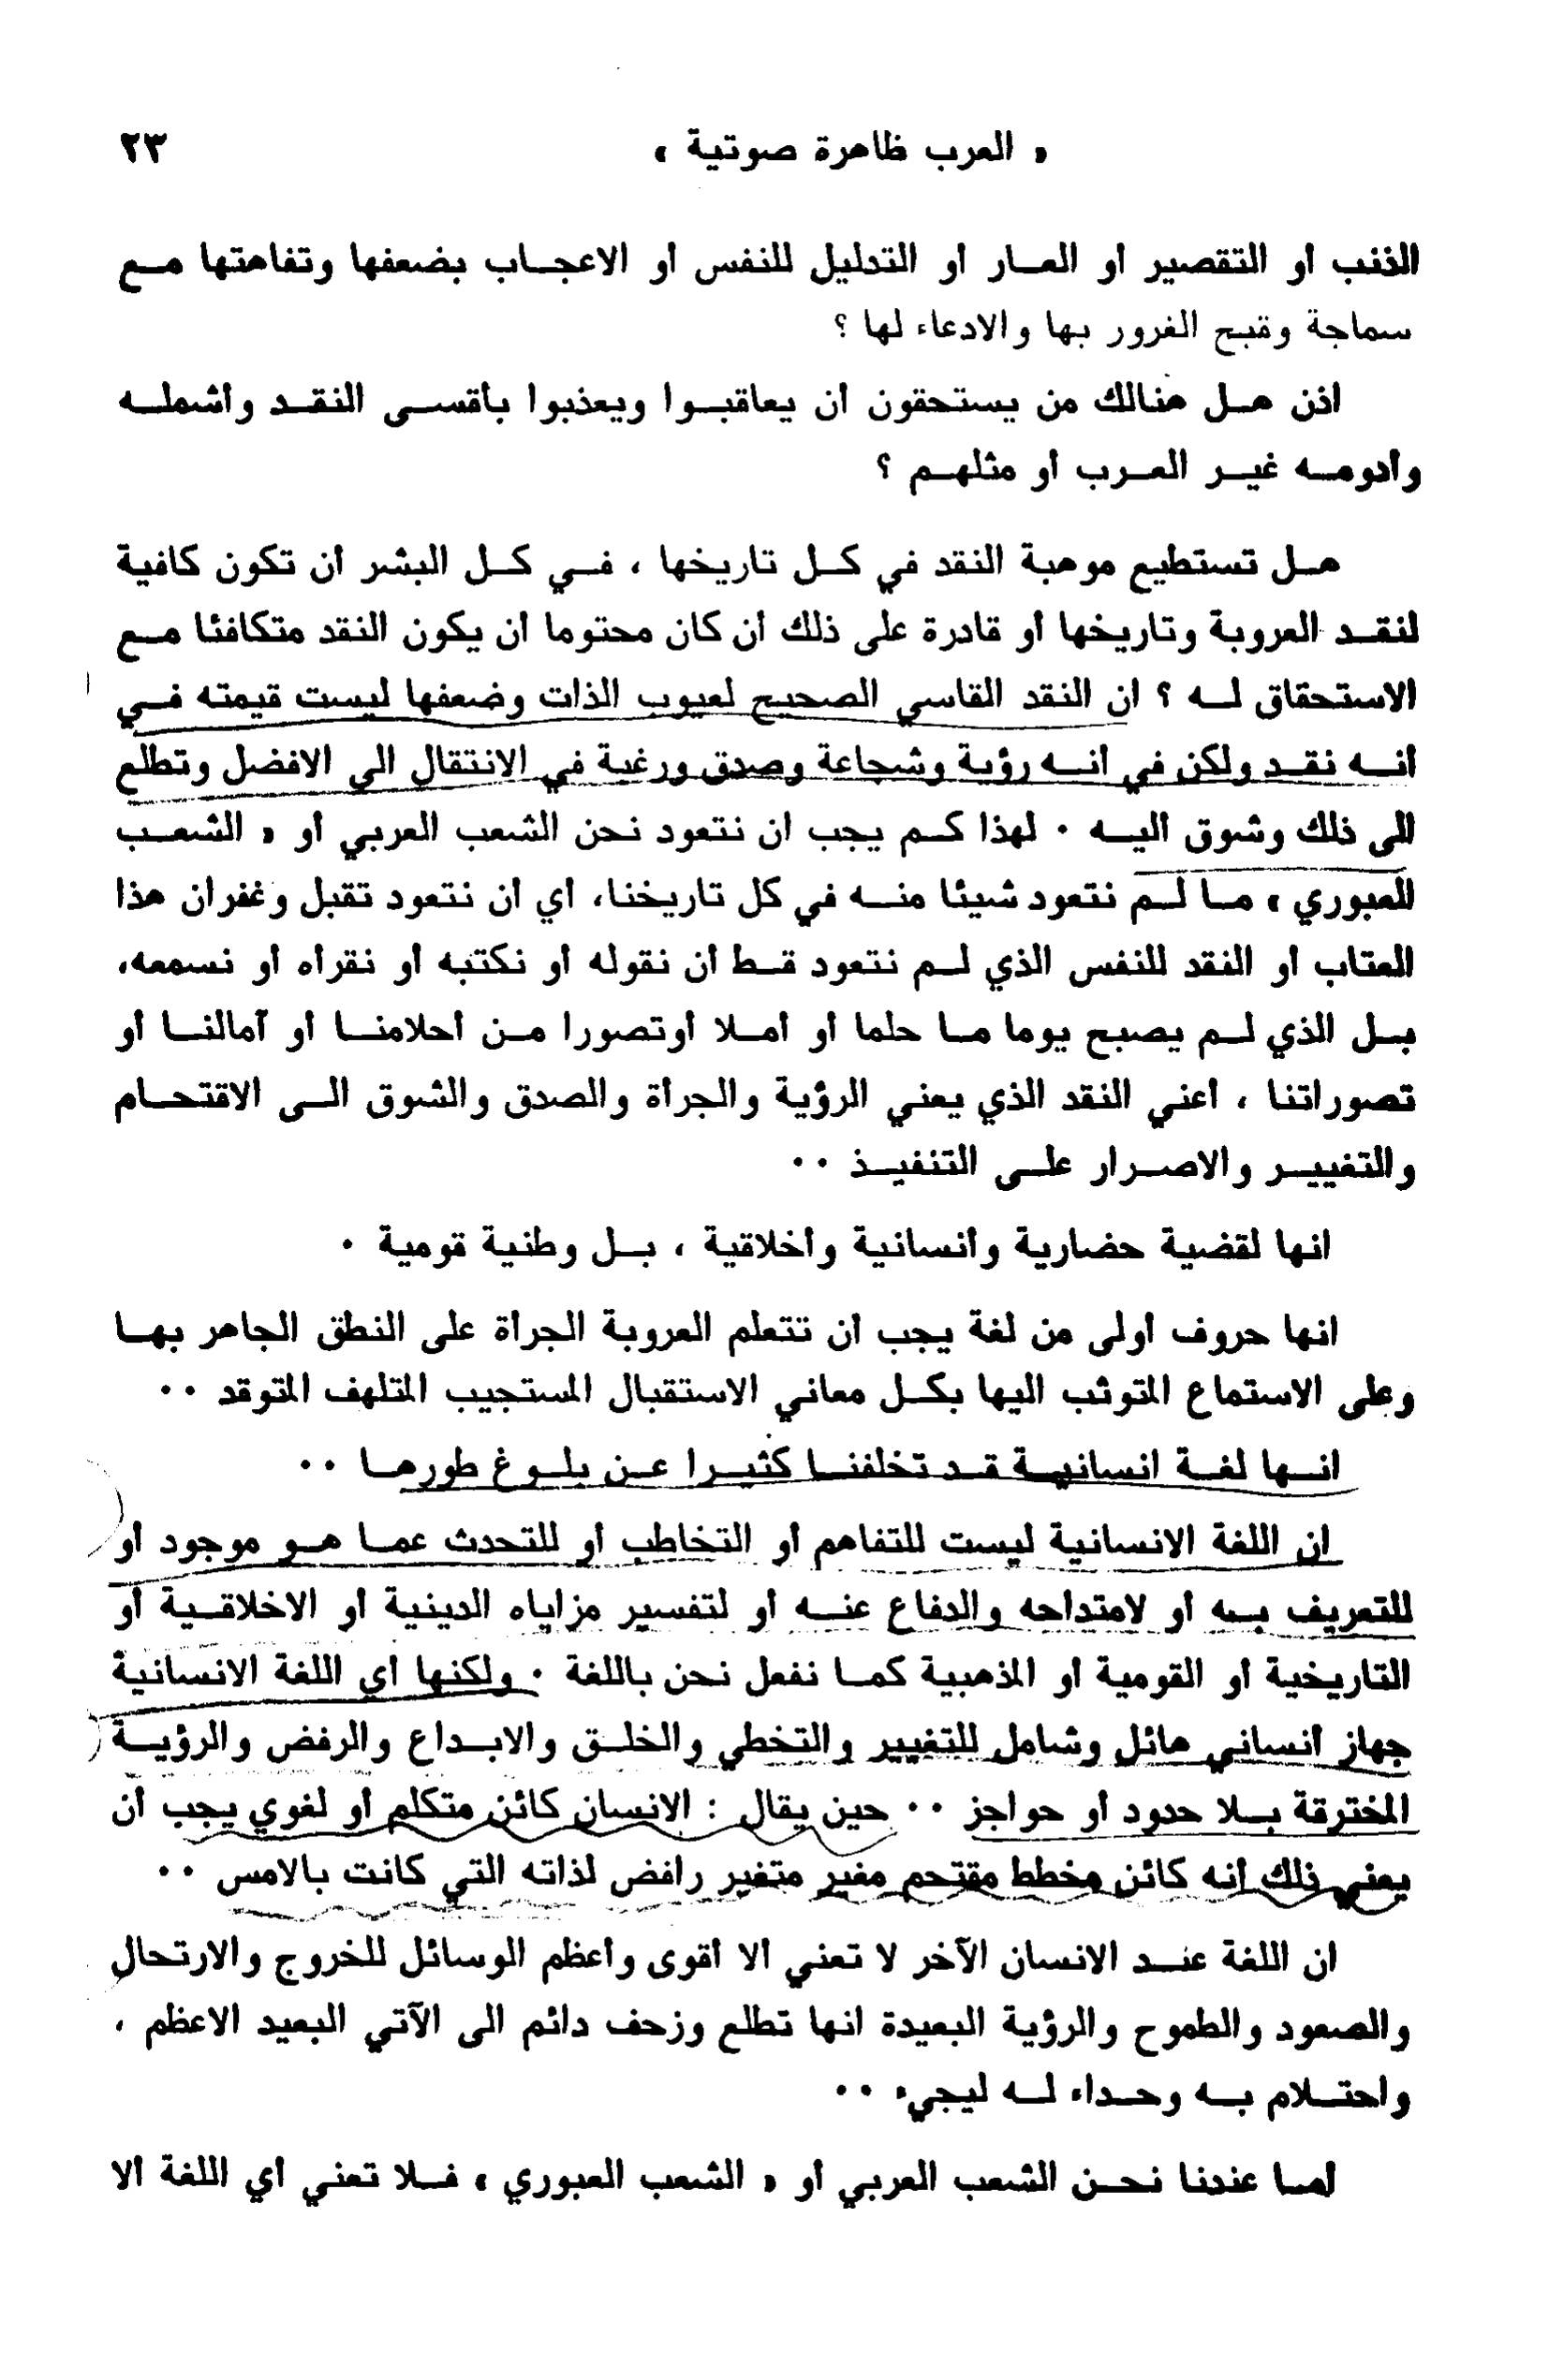 « العرب ظاهرة صوتية »
٢٣
الذنب أو التقصير أو العار أو التدليل للنفس أو الاعجاب بضعفها وتفاهتها مع
سماجة وقبح الغرور بها والادعاء لها ؟
اذن هل هنالك من يستحقون أن يعاقبوا ويعذبوا بأقسى النقد وأشمله
وأدومه غير العرب أو مثلهم ؟
هل تستطيع موهبة النقد في كل تاريخها ، في كل البشر أن تكون كافية
لنقد العروبة وتاريخها أو قادرة على ذلك أن كان محتوما أن يكون النقد متكافئا مع
الاستحقاق له ؟ ان النقد القاسي الصحيح لعيوب الذات وضعفها ليست قيمته في
أنه نقد ولكن في أنه رؤية وشجاعة وصدق ورغبة في الانتقال الى الافضل وتطلع
الى ذلك وشوق اليه . لهذا كم يجب ان نتعود نحن الشعب العربي أو « الشعب
العبوري » ما لم نتعود شيئا منه في كل تاريخنا، أي أن نتعود تقبل وغفران هذا
العتاب أو النقد للنفس الذي لم نتعود قط أن نقوله أو نكتبه أو نقرأه أو نسمعه،
بل الذي لم يصبح يوما ما حلما أو أملا أوتصورا من أحلامنا أو آمالنا أو
تصوراتنا ، أعني النقد الذي يعني الرؤية والجرأة والصدق والشوق الى الاقتحام
والتغيير والاصرار على التنفيذ ..
انها لقضية حضارية وأنسانية وأخلاقية ، بل وطنية قومية .
انها حروف أولى من لغة يجب أن تتعلم العروبة الجرأة على النطق الجاهر بها
وعلى الاستماع المتوثب اليها بكل معاني الاستقبال المستجيب المتلهف المتوقد ..
انها لغة انسانية قد تخلفنا كثيرا عن بلوغ طورها ..
ان اللغة الانسانية ليست للتفاهم أو التخاطب أو للتحدث عما هو موجود أو
للتعريف به أو لامتداحه والدفاع عنه أو لتفسير مزاياه الدينية أو الاخلاقية أو
التاريخية أو القومية أو المذهبية كما نفعل نحن باللغة . ولكنها أي اللغة الانسانية
جهاز أنساني هائل وشامل للتغيير والتخطي والخلق والابداع والرفض والرؤية
المخترقة بلا حدود أو حواجز .. حين يقال : الانسان كائن متكلم أو لغوي يجب أن
يعني ذلك أنه كائن مخطط مقتحم مغير متغير رافض لذاته التي كانت بالامس ..
ان اللغة عند الانسان الآخر لا تعني الا أقوى وأعظم الوسائل للخروج والارتحال
والصعود والطموح والرؤية البعيدة انها تطلع وزحف دائم الى الآتي البعيد الاعظم ،
واحتلام به وحداء له ليجيء ..
أما عندنا نحن الشعب العربي أو « الشعب العبوري » فلا تعني أي اللغة الا